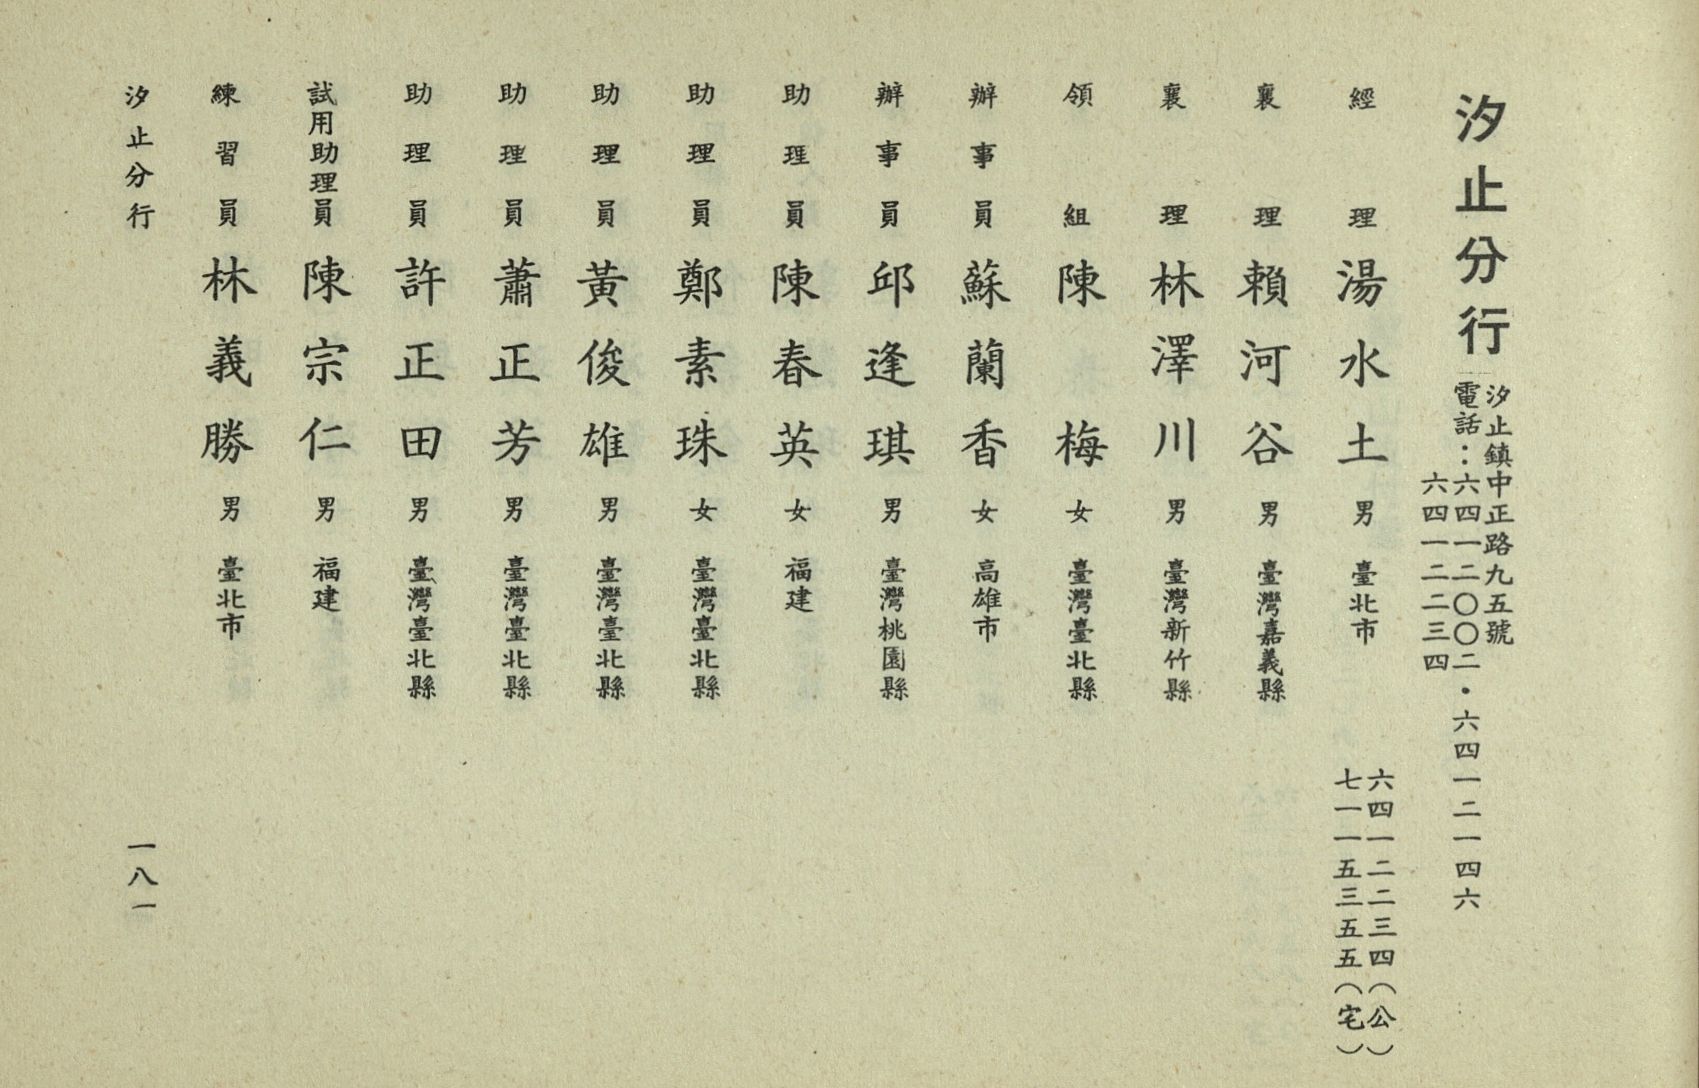 汐止分行
汐止鎮中正路九五號
電話：六四一二〇〇二・六四一二一四六
六四一二二三四
經理 湯水土 男 臺北市 六四一二二三四（公）
七一一五三五五（宅）
襄理 賴河谷 男 臺灣嘉義縣
襄理 林澤川 男 臺灣新竹縣
領組 陳梅 女 臺灣臺北縣
辦事員 蘇蘭香 女 高雄市
辦事員 邱逢琪 男 臺灣桃園縣
助理員 陳春英 女 福建
助理員 鄭素珠 女 臺灣臺北縣
助理員 黃俊雄 男 臺灣臺北縣
助理員 蕭正芳 男 臺灣臺北縣
助理員 許正田 男 臺灣臺北縣
試用助理員 陳宗仁 男 福建
練習員 林義勝 男 臺北市
汐止分行
一八一